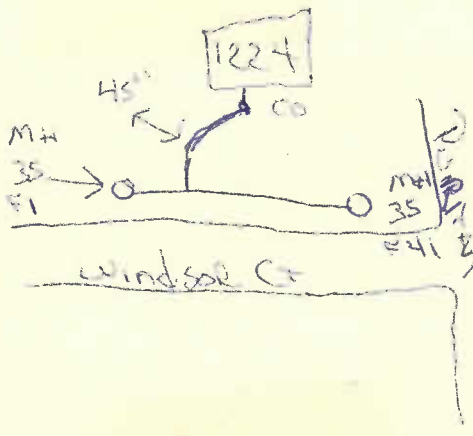 1224
45"
CO
MH
35
F1
MH
35
F41
Windsor Ct